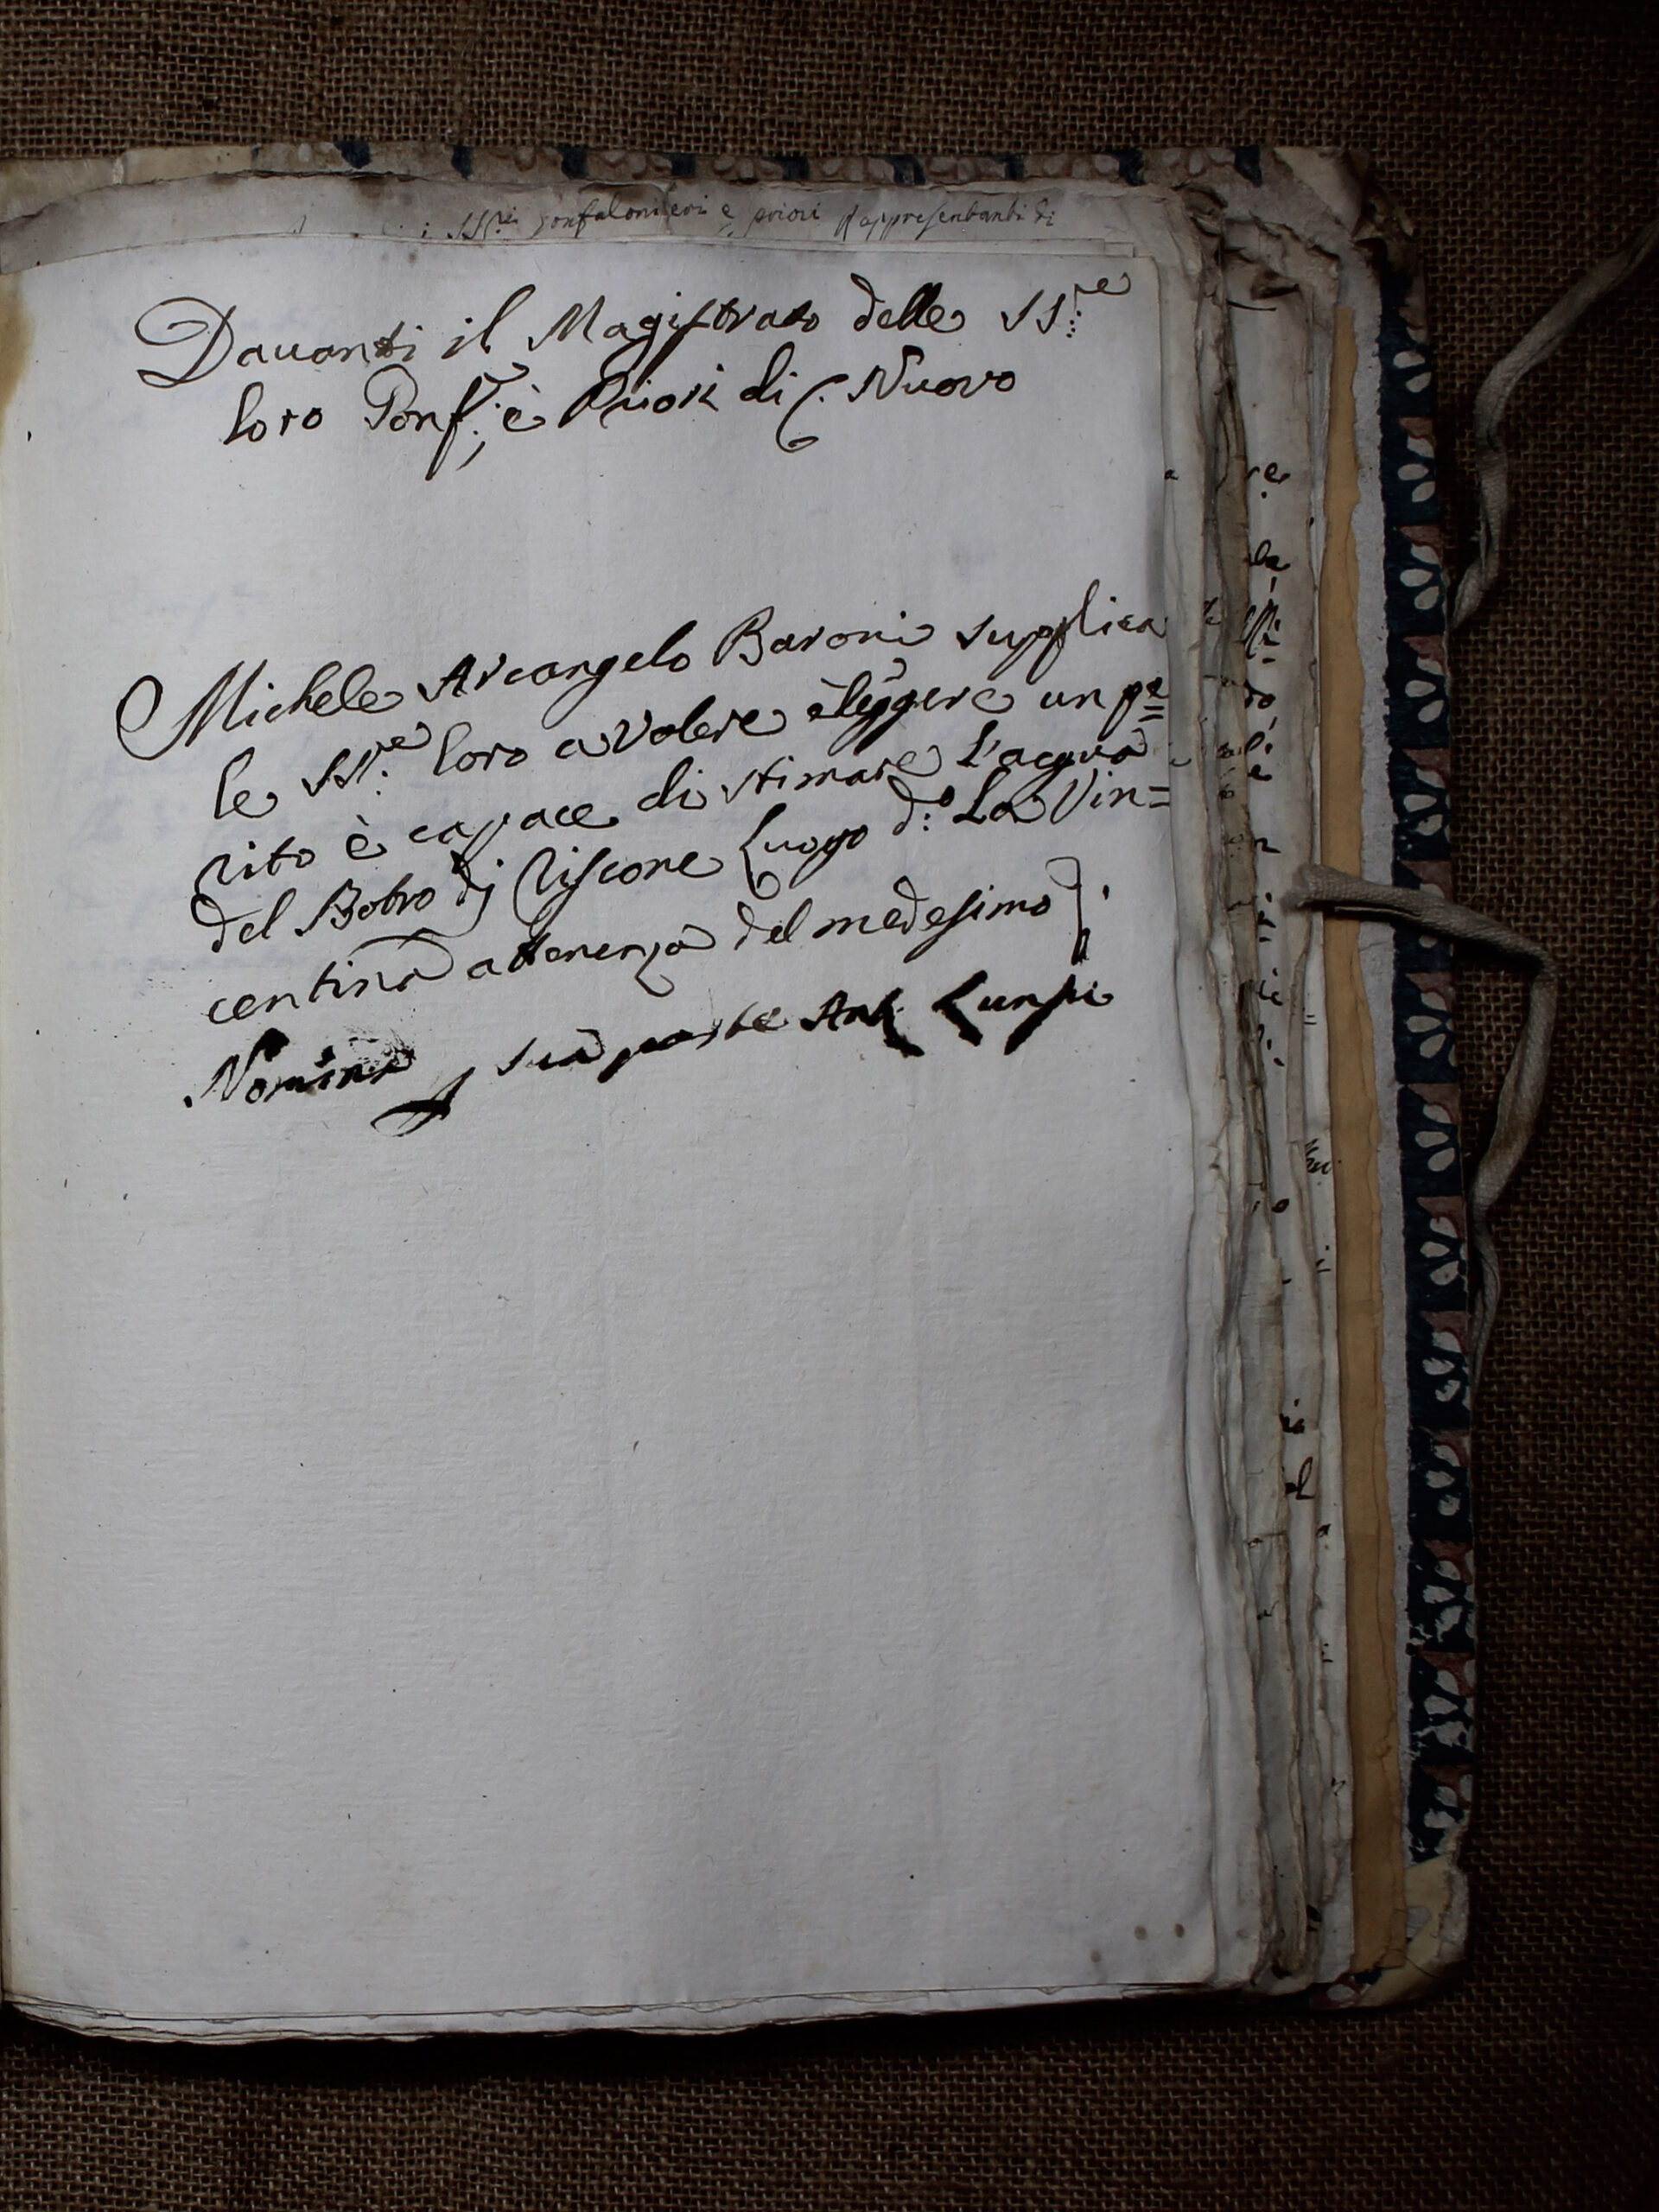 SS.ri Gonfalonieri e priori Rappresentanti di
Dauanti il Magistrato delle SS:re
loro Gonf:, è Priori di C. Nuovo
Michele Arcangelo Baroni supplica
le SS:re loro a volere eleggere un pe=
rito è capace di stimare L'acqua
del Botro di Riscone Luogo d:o La Vin=
centina attenenza del medesimo
Nomina p sua parte Ant.